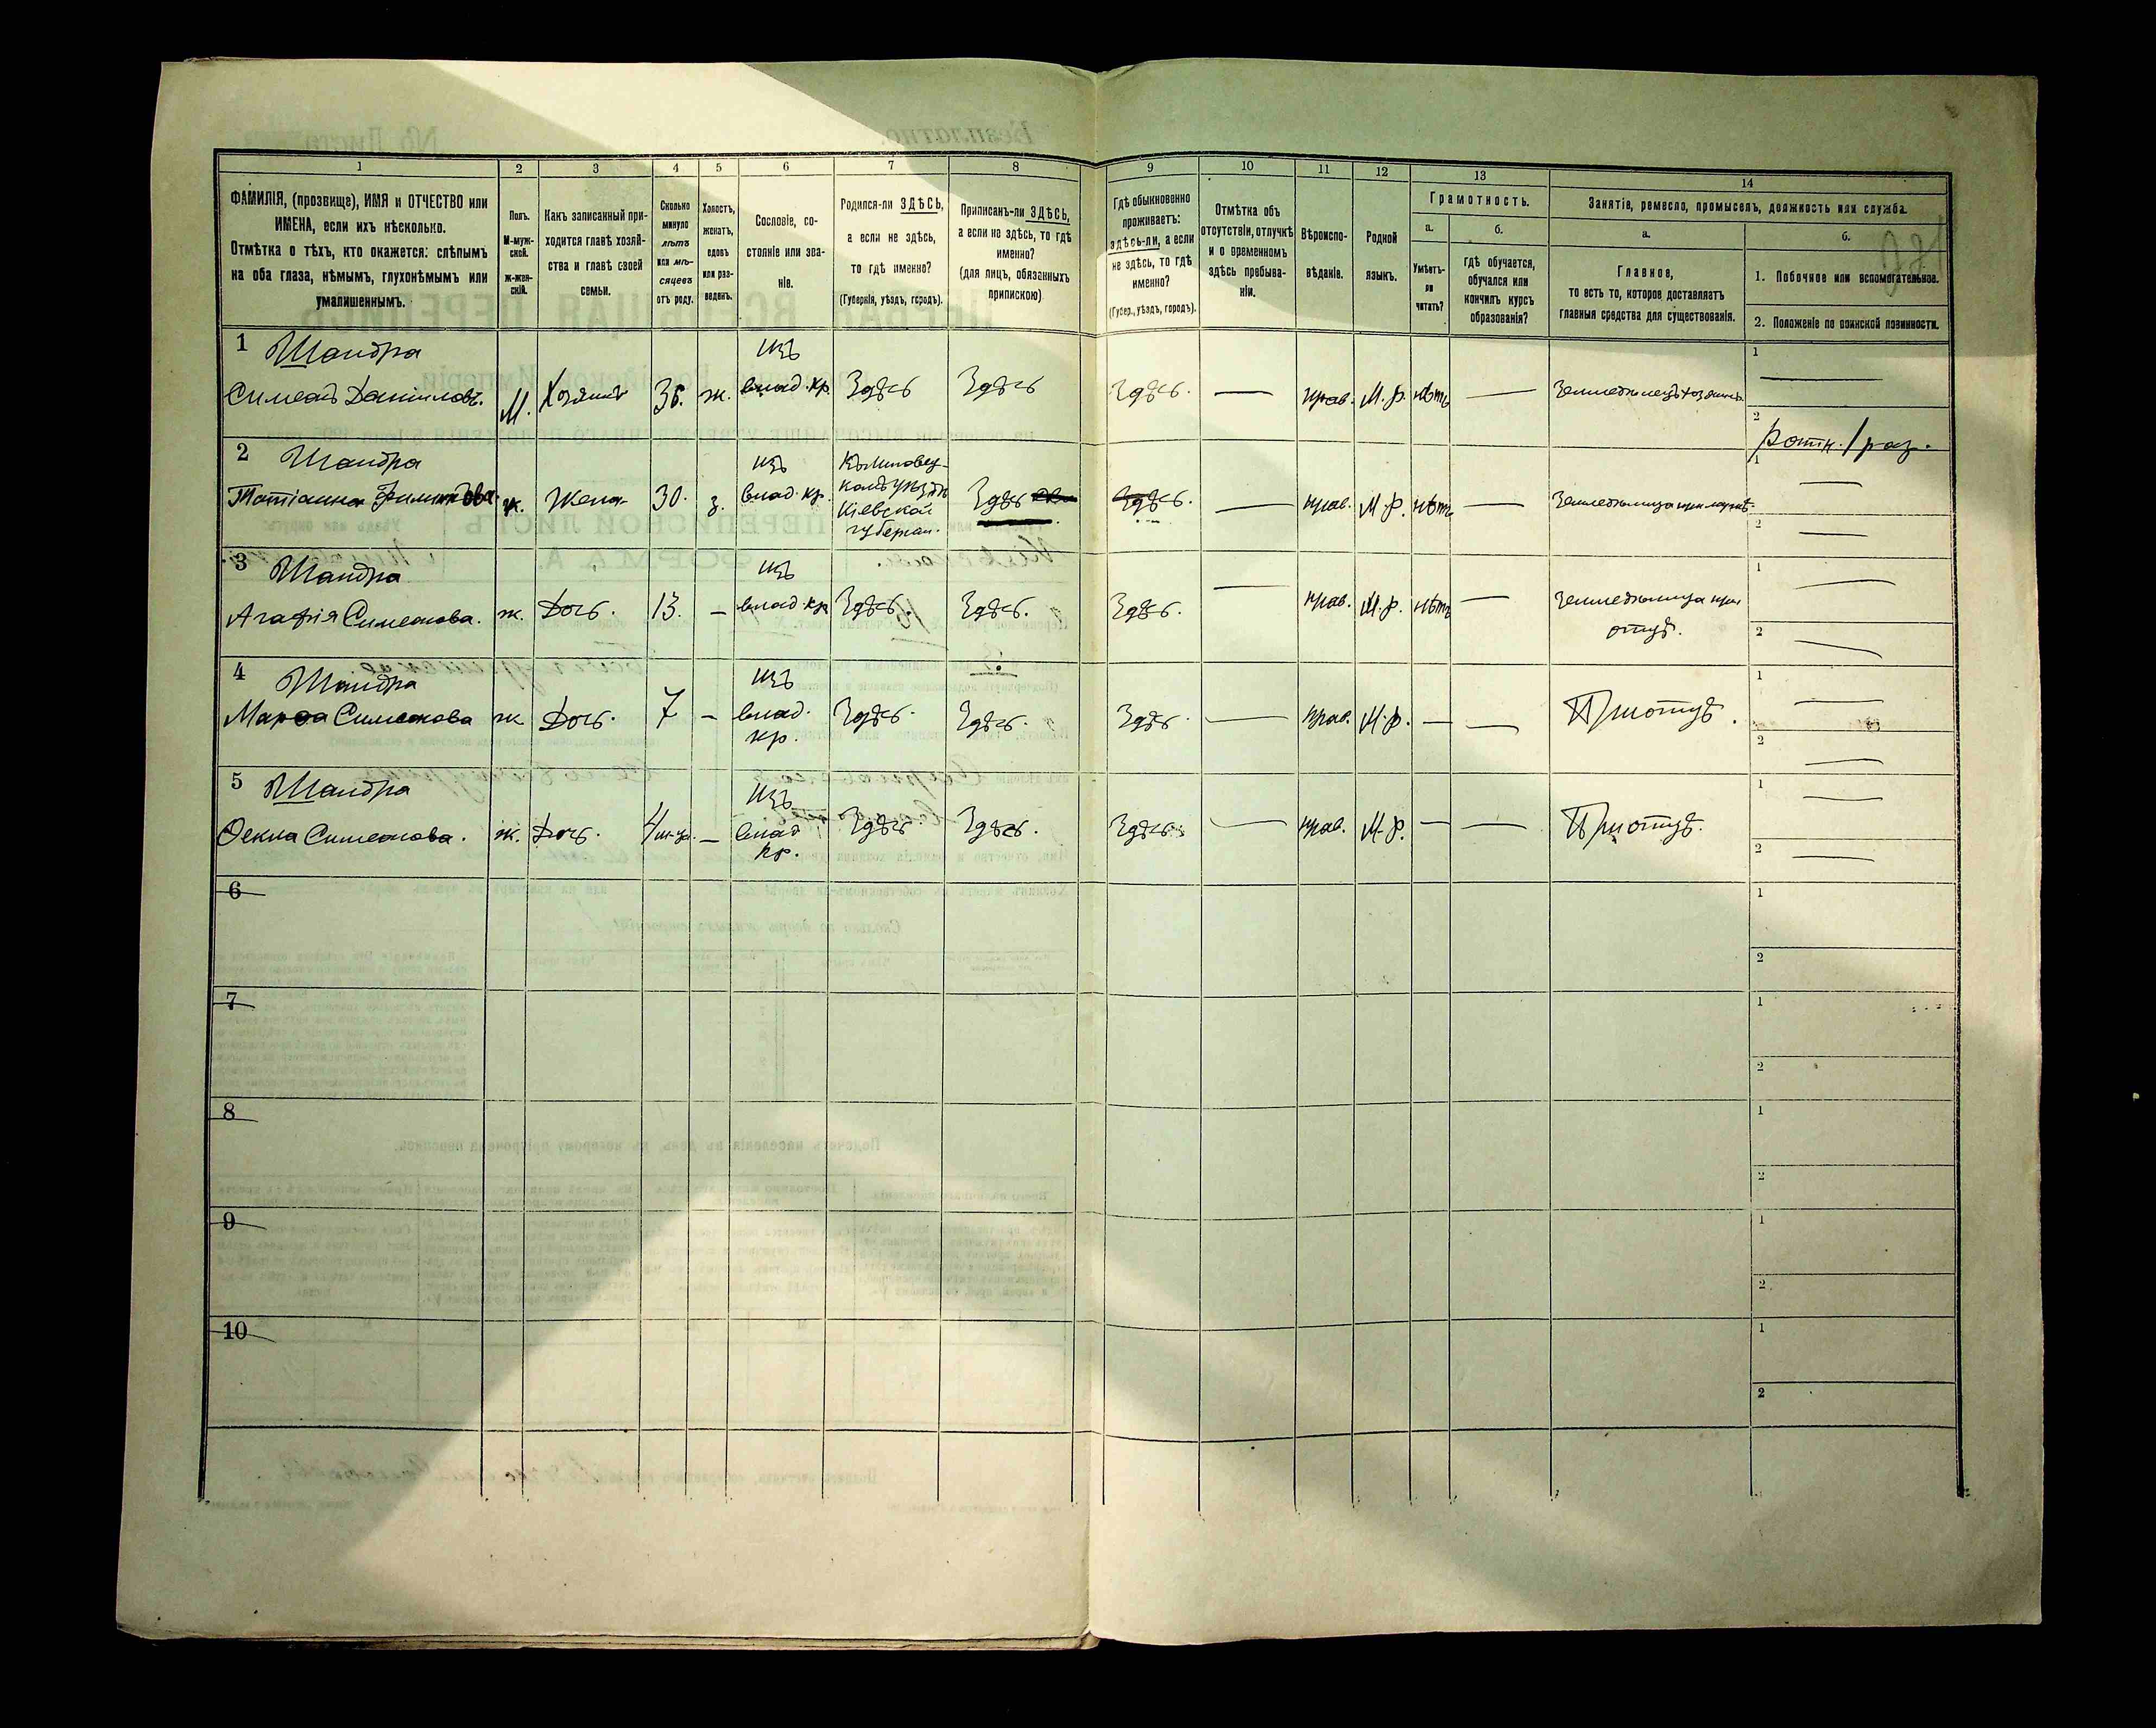 1
2
3
4
5
6
7
8
9
10
11
12
13
14
ФАМИЛІЯ, (прозвище), ИМЯ и ОТЧЕСТВО или
ИМЕНА, если ихъ нѣсколько.
Отмѣтка о тѣхъ, кто окажется: слѣпымъ
на оба глаза, нѣмымъ, глухонѣмымъ или
умалишеннымъ.
Полъ.
М-муж-
ской.
Ж-жен-
скій.
Какъ записанный при-
ходится главѣ хозяй-
ства и главѣ своей
семьи.
Сколько
минуло
лѣтъ
или мѣ-
сяцевъ
отъ роду.
Холостъ,
женатъ,
вдовъ
или раз-
веденъ.
Сословіе, со-
стояніе или зва-
ніе.
Родился-ли ЗДѢСЬ,
а если не здѣсь,
то гдѣ именно?
(Губернія, уѣздъ, городъ).
Приписанъ-ли ЗДѢСЬ,
а если не здѣсь, то гдѣ
именно?
(для лицъ, обязанныхъ
припискою)
Гдѣ обыкновенно
проживаетъ:
здѣсь-ли, а если
не здѣсь, то гдѣ
именно?
(Губер., уѣздъ, городъ).
Отмѣтка объ
отсутствіи, отлучкѣ
и о временномъ
здѣсь пребыва-
ніи.
Вѣроиспо-
вѣданіе.
Родной
языкъ.
Грамотность.
а.
Умѣетъ-
ли
читать?
б.
гдѣ обучается,
обучался или
кончилъ курсъ
образованія?
Занятіе, ремесло, промыселъ, должность или служба.
а.
Главное,
то есть то, которое доставляетъ
главныя средства для существованія.
б.
1. Побочное или вспомогательное.
2. Положеніе по воинской повинности.
1 Шандра изъ 1
Симеонъ Даніиловъ. М. Хозяинъ 36. ж. влад. кр. Здѣсь Здѣсь Здѣсь. — прав. М. р. нѣтъ — Земледѣлецъ хозяинъ —
2
2 Шандра изъ 1
Татіанна ж. Жена 30. з. влад. кр. уѣзда Здѣсь Здѣсь. — прав. М. р. нѣтъ — —
Кіевской
губерніи. 2 —
3 Шандра изъ 1 —
Агафія Симеонова. ж. Дочь. 13. — влад. кр. Здѣсь. Здѣсь. Здѣсь. — прав. М. р. нѣтъ — Земледѣлица при
отцѣ. 2 —
4 Шандра изъ 1 —
Марѳа Симеонова ж. Дочь. 7 — влад. Здѣсь. Здѣсь. Здѣсь. — прав. М. р. — — При отцѣ.
кр. 2 —
5 Шандра изъ 1 —
Ѳекла Симеонова. ж. Дочь. — влад Здѣсь Здѣсь. Здѣсь. — прав. М. р. — — При отцѣ.
кр. 2 —
6 1
2
7 1
2
8 1
2
9 1
2
10 1
2